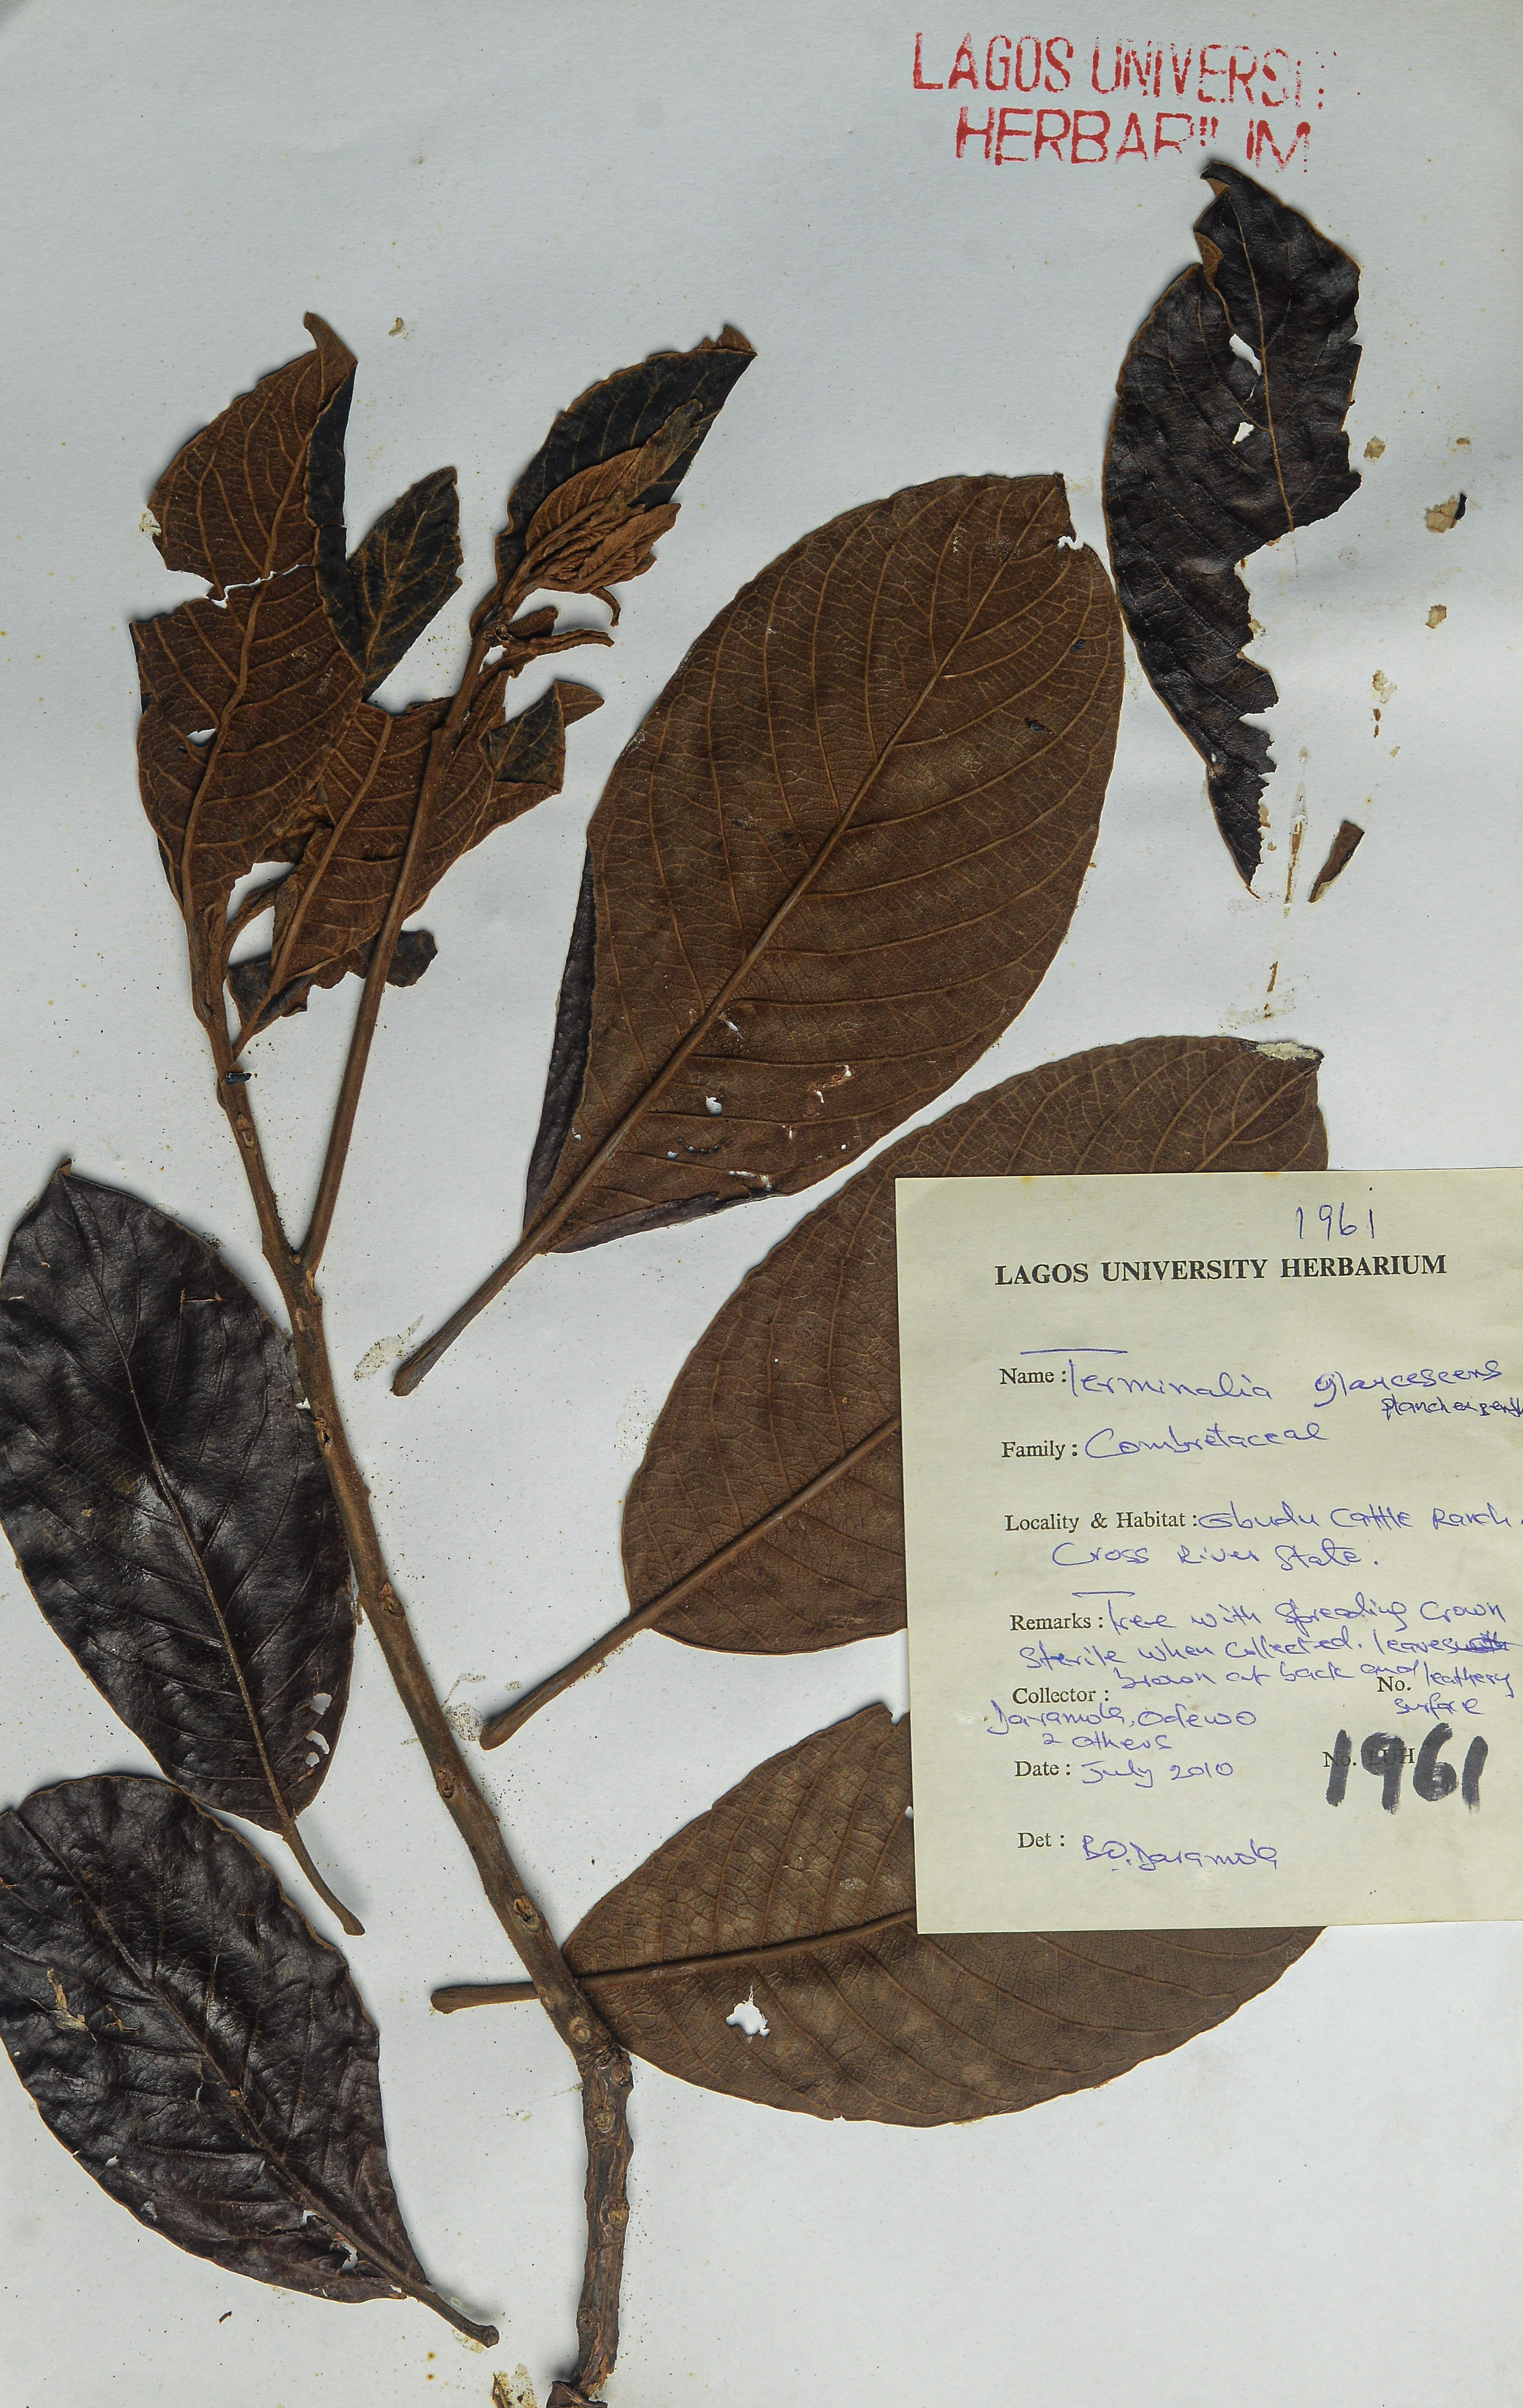 LAGOS UNIVERSI
HERBARIUM
1961
LAGOS UNIVERSITY HERBARIUM
Name: Terminalia glaucescens
Planch ex Benth
Family: Combretaceae
Locality & Habitat: Obudu Cattle Ranch.
Cross River State.
Remarks: Tree with spreading crown
sterile when collected. leaves
brown at back and leathery
surface
Collector: No.
Daramola, Odewo
2 others
Date: July 2010
No. LUH
1961
Det: B.O. Daramola